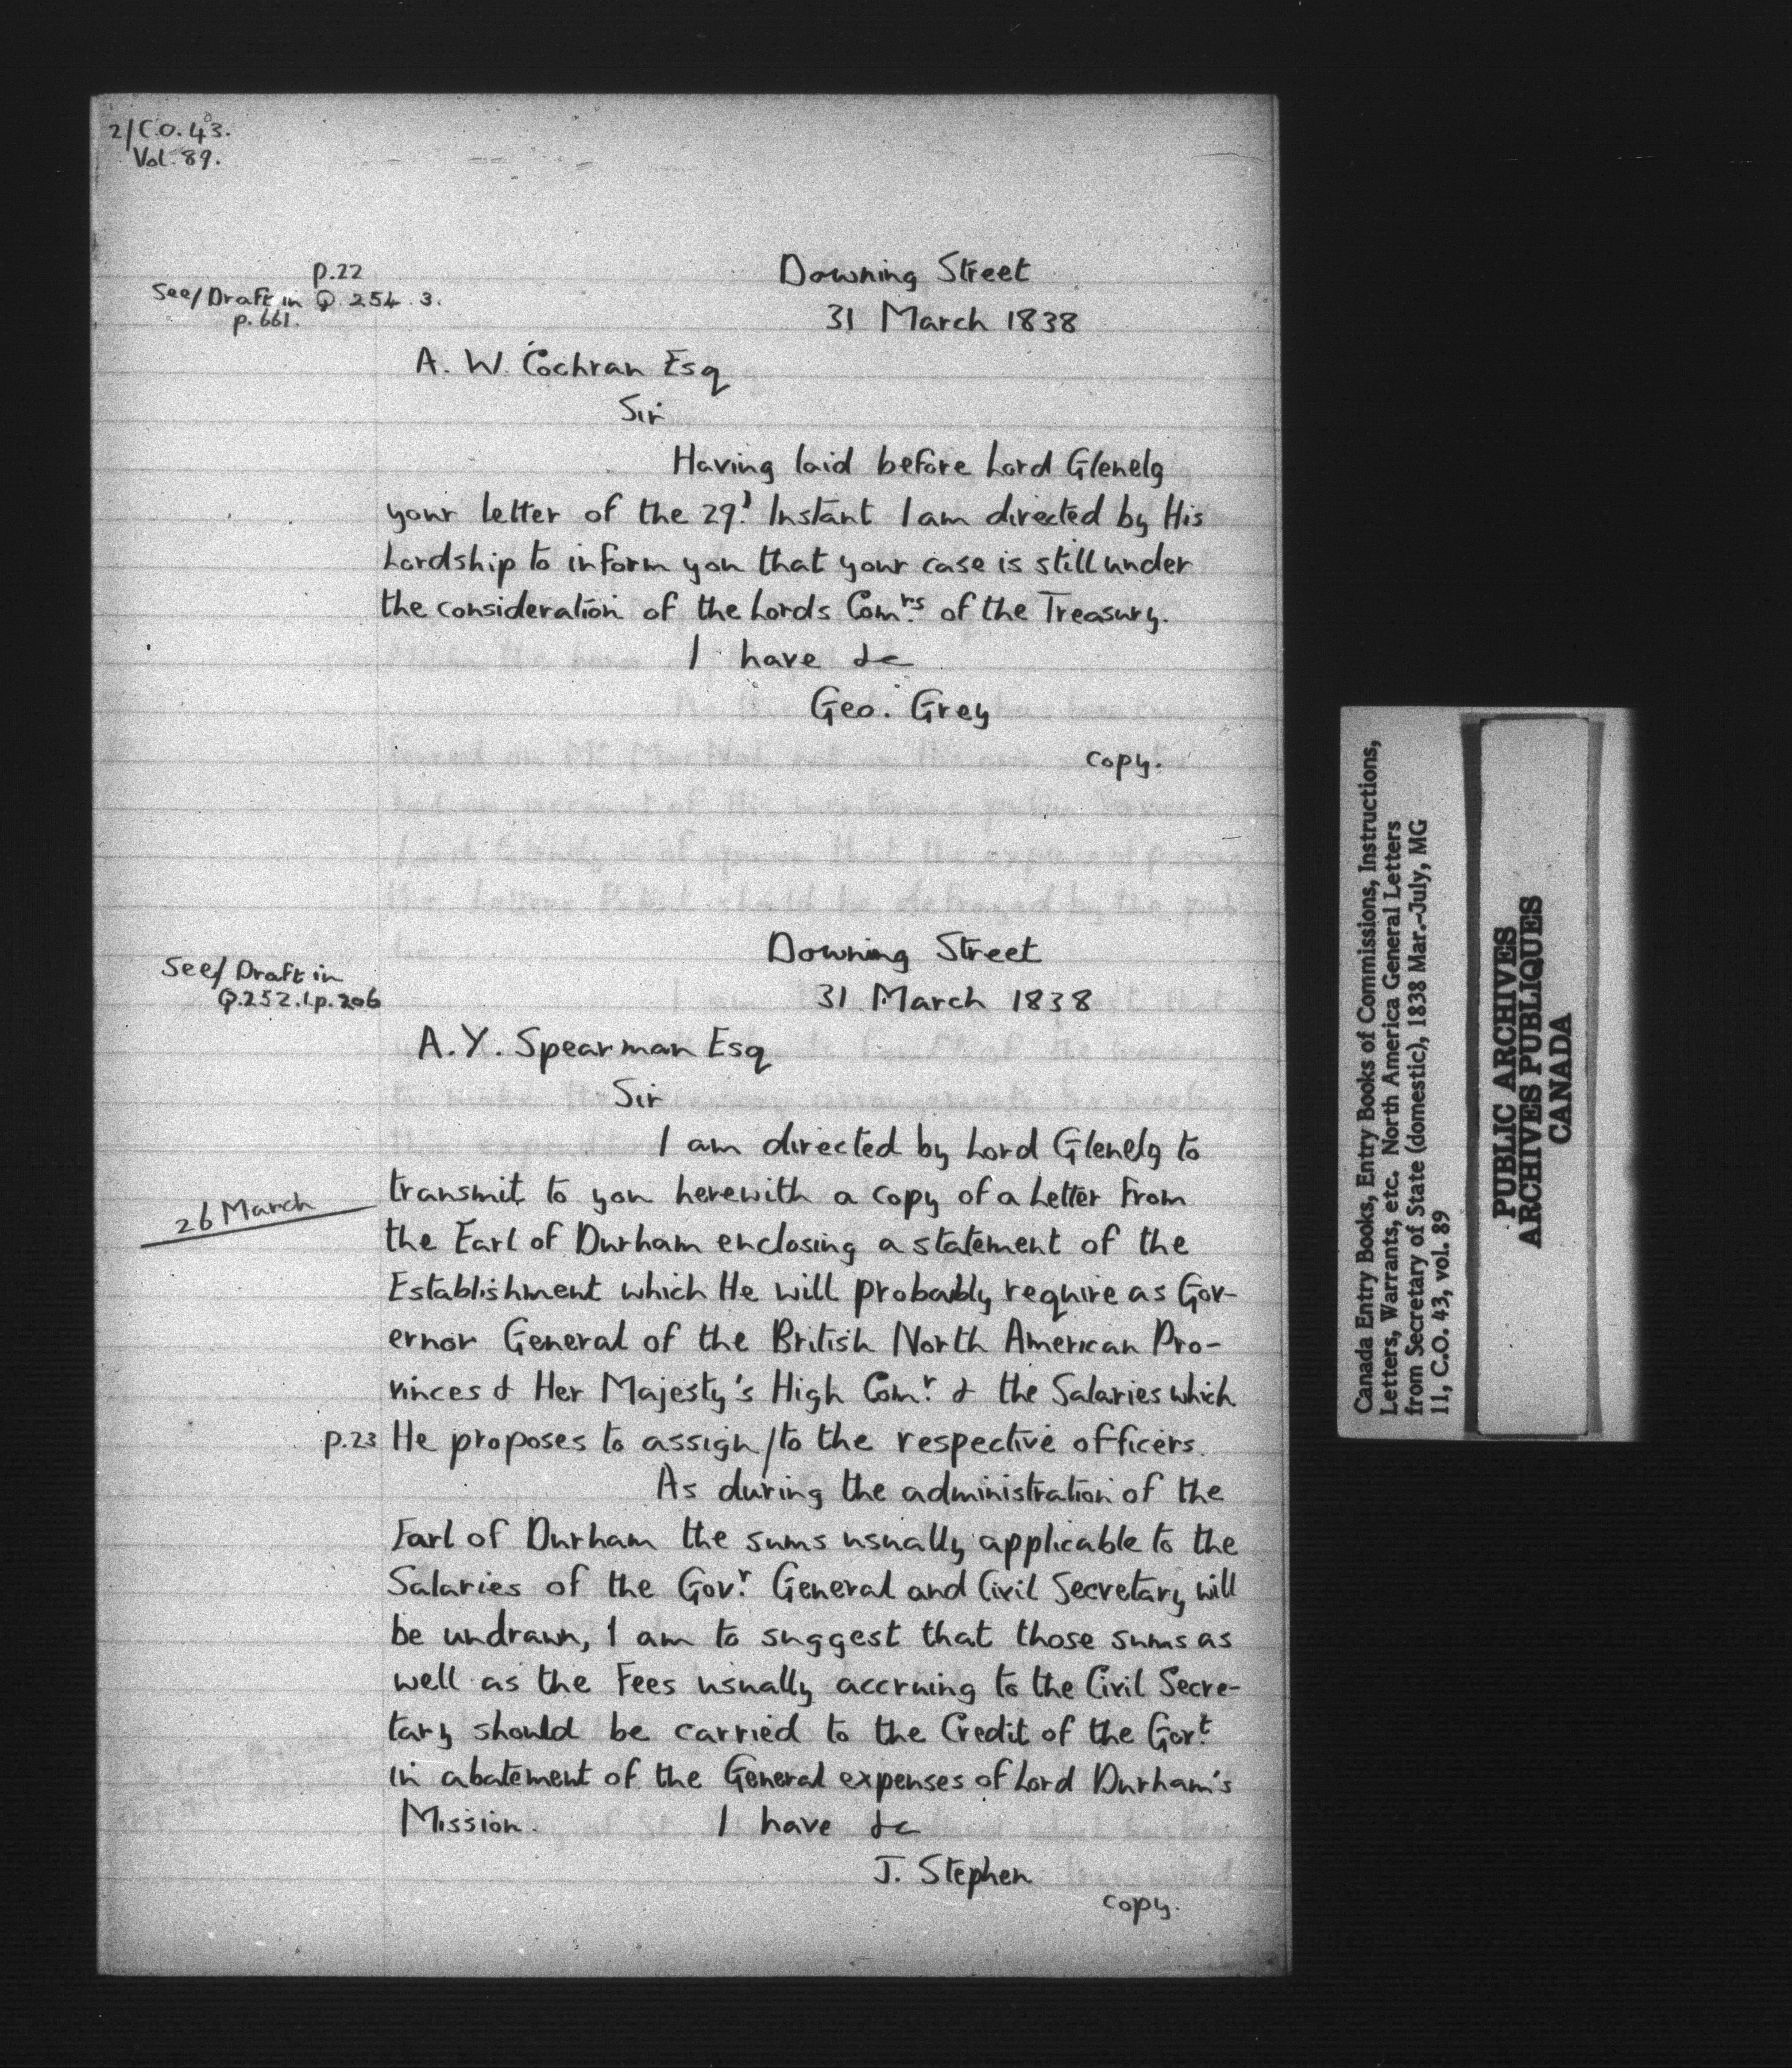 2/C.O. 43.
Vol. 89.
p.22
See/ Draft in Q. 254. 3.
p. 661.
Downing Street
31 March 1838
A. W. Cochran Esq
Sir
Having laid before Lord Glenelg
your letter of the 29. Instant I am directed by His
Lordship to inform you that your case is still under
the consideration of the Lords Comrs. of the Treasury.
I have &c
Geo. Grey
copy.
See/ Draft in
Q.252.1.p.206
Downing Street
31 March 1838
A. Y. Spearman Esq
Sir
I am directed by Lord Glenelg to
transmit to you herewith a copy of a Letter from
26 March
the Earl of Durham enclosing a statement of the
Establishment which He will probably require as Gov-
ernor General of the British North American Pro-
vinces & Her Majesty's High Comr. & the Salaries which
p.23 He proposes to assign/to the respective officers.
As during the administration of the
Earl of Durham the sums usually applicable to the
Salaries of the Govr. General and Civil Secretary will
be undrawn, I am to suggest that those sums as
well as the Fees usually accruing to the Civil Secre-
tary should be carried to the Credit of the Govt.
in abatement of the General expenses of Lord Durham's
Mission. I have &c
J. Stephen
copy.
Canada Entry Books, Entry Books of Commissions, Instructions,
Letters, Warrants, etc. North America General Letters
from Secretary of State (domestic), 1838 Mar.-July, MG
11, C.O. 43, vol. 89
PUBLIC ARCHIVES
ARCHIVES PUBLIQUES
CANADA